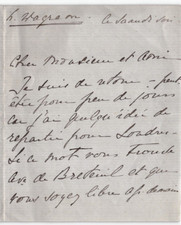 h. Wagram le Samedi soir
Cher Monsieur et Ami
Je suis de retour – peut
être pour peu de jours
car j'ai quelque idée de
repartir pour Londres.
Si ce mot vous trouve
Ave de Breteuil et que
vous soyez libre ap. demain